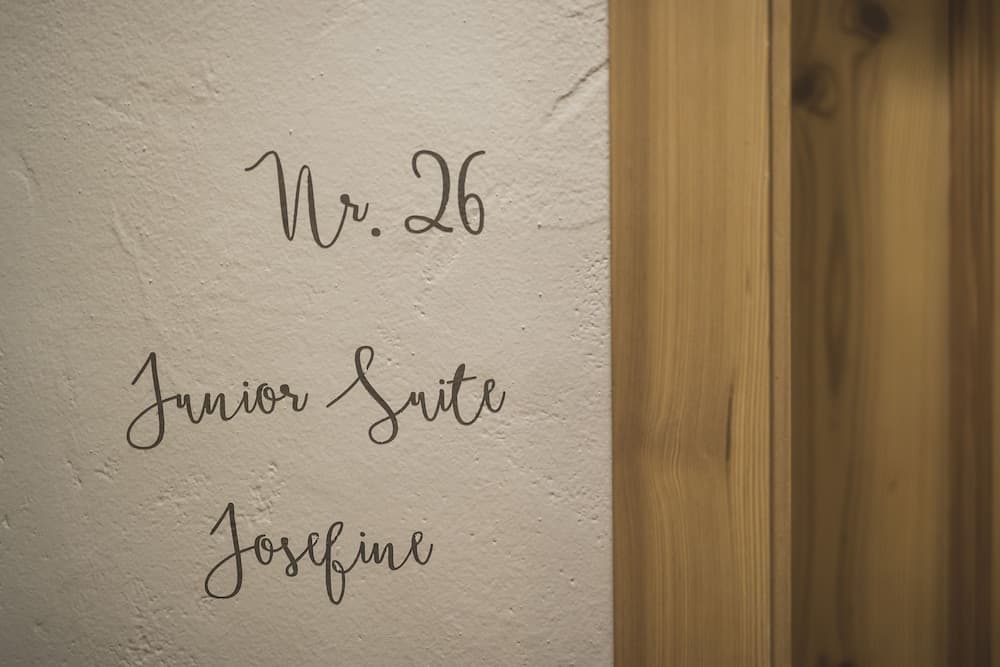 Nr. 26
Junior Suite
Josefine